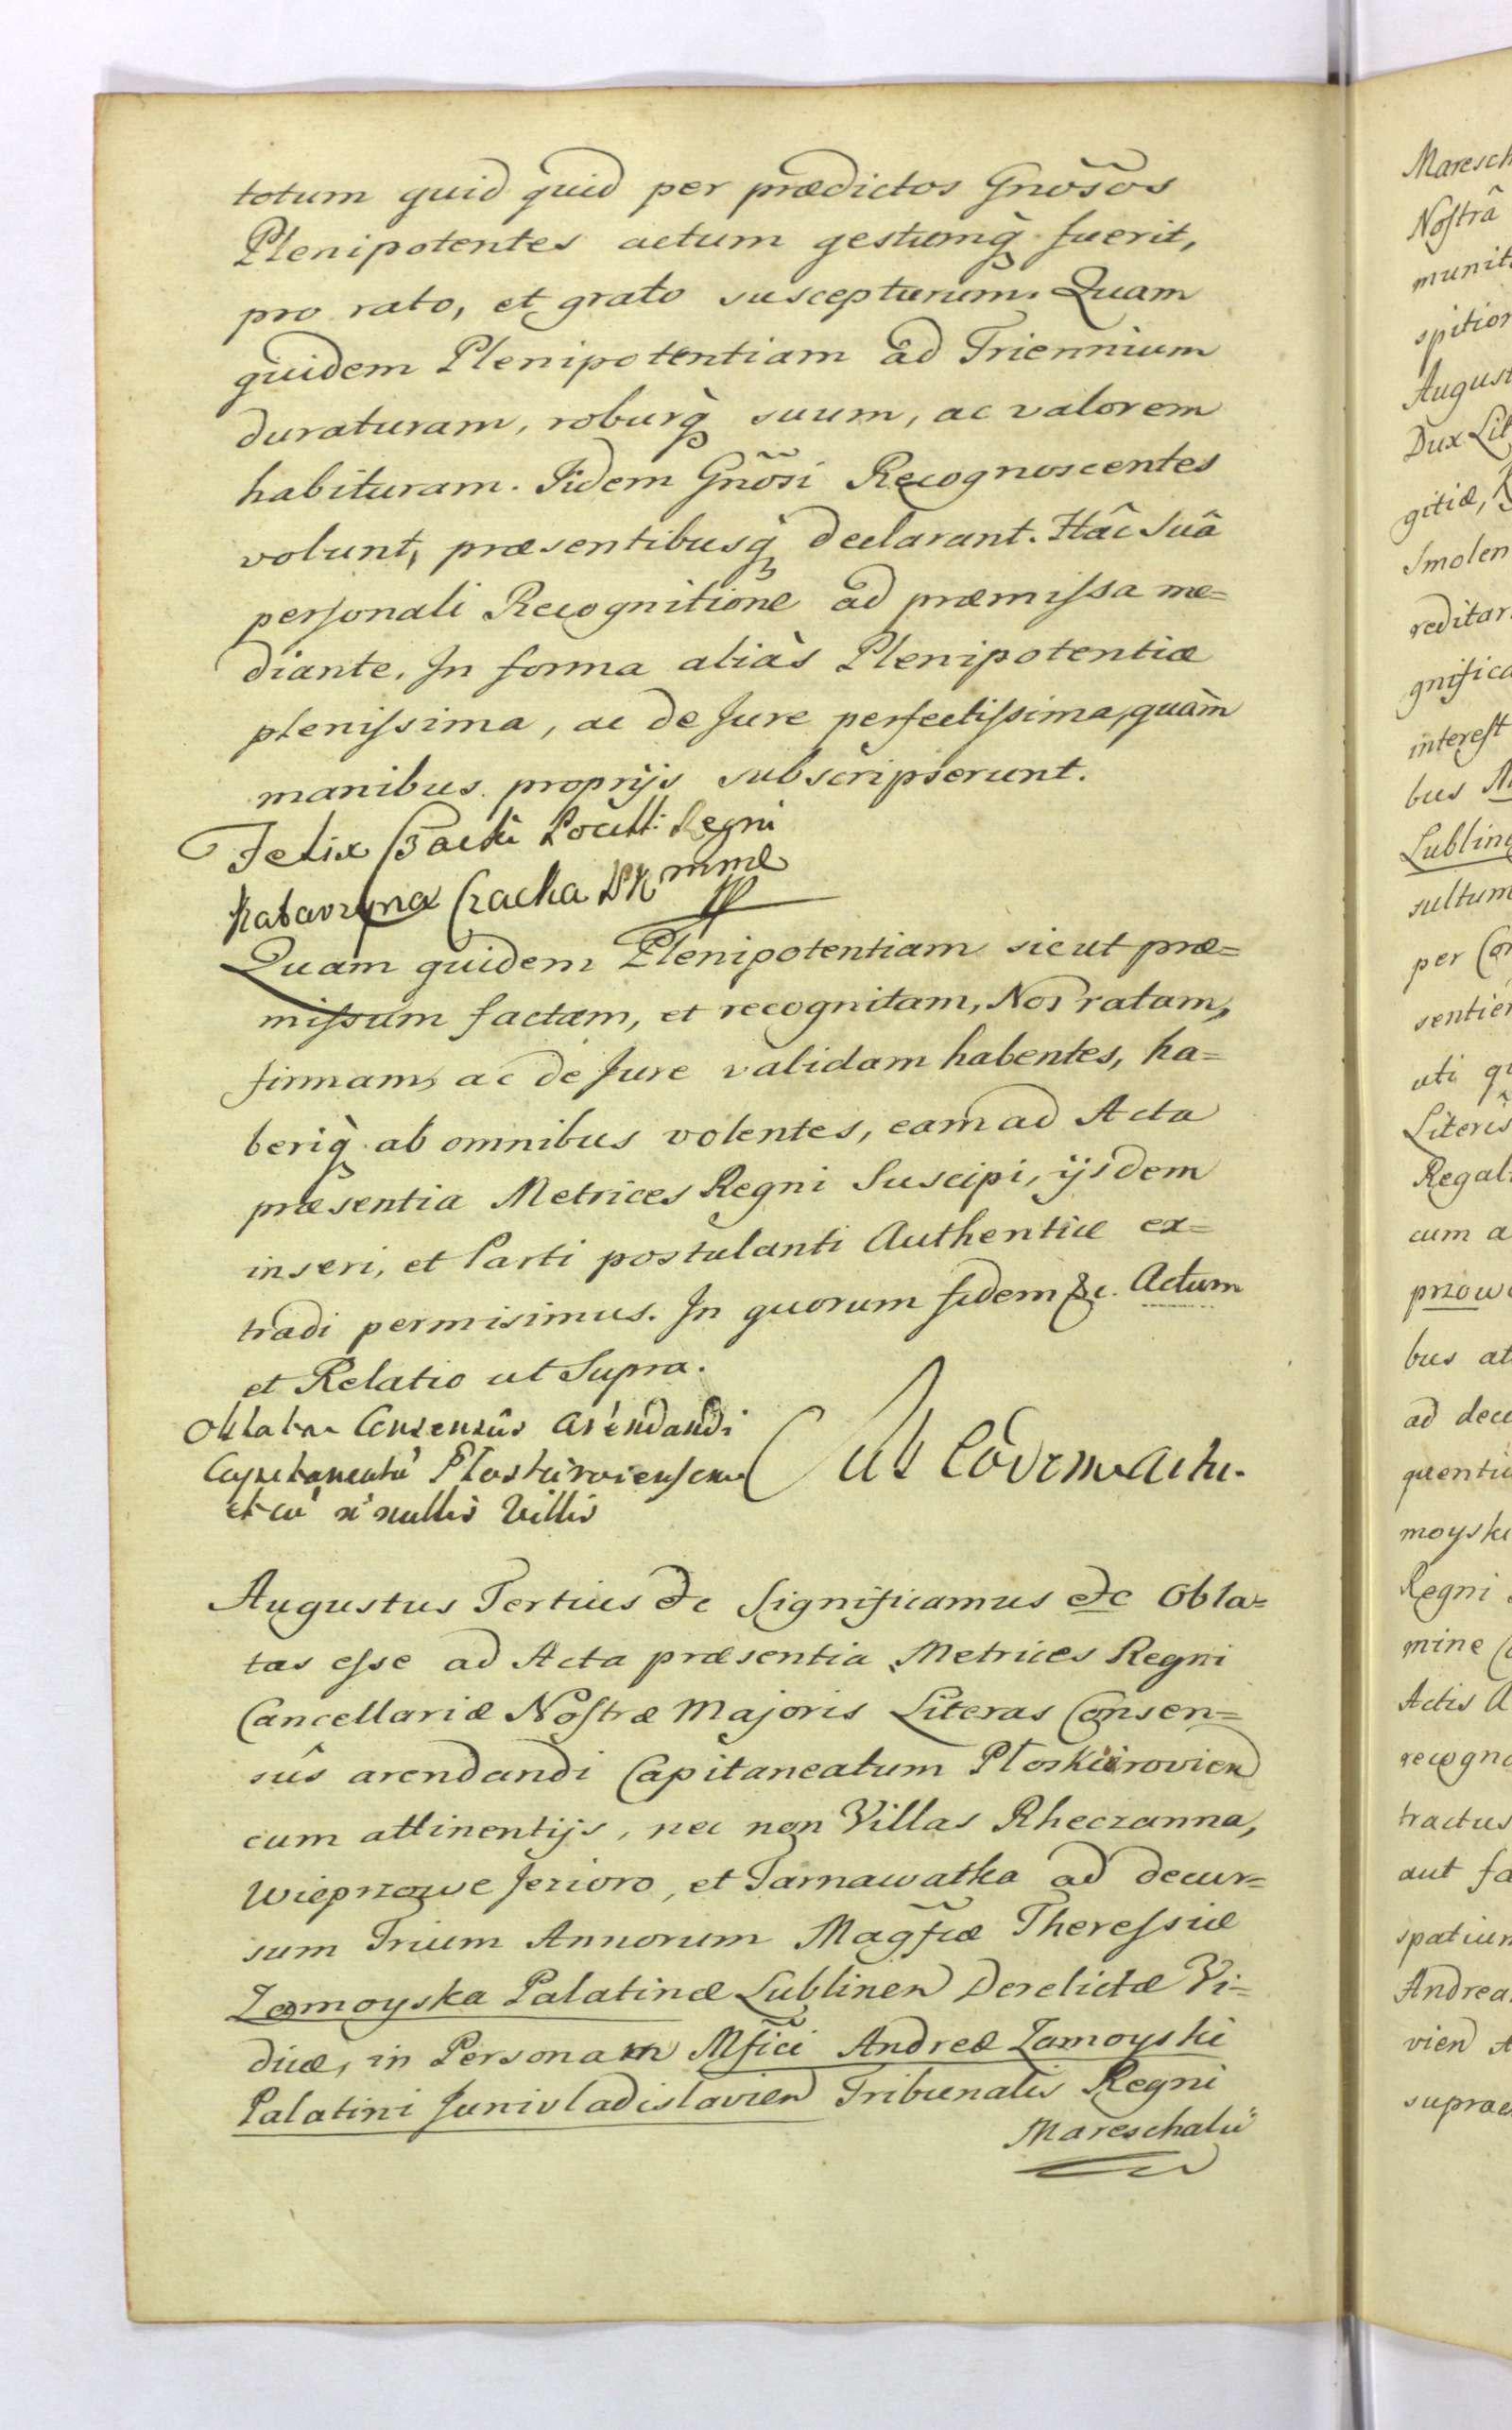 totum quid quid per prædictos Gnõsos
Plenipotentes actum gestumq̀ fuerit,
pro rato, et grato suscepturum. Quam
quidem Plenipotentiam ad Triennium
duraturam, roburq̀ suum, ac valorem
habituram. Iidem Gnõsi Recognoscentes
volunt, præsentibusq̀ declarant. Hâc Suâ
personali Recognitione ad præmissa me=
diante. In forma aliàs Plenipotentiæ
plenissima, ac de Jure perfectissima, quàm
manibus proprijs subscripserunt.
Felix Regni
Katarzyna Czacka
Quam quidem Plenipotentiam sicut præ=
missum factam, et recognitam, Nos ratam,
firmam, ac de Jure validam habentes, ha=
beriq̀ ab omnibus volentes, eam ad Acta
præsentia Metrices Regni Suscipi, ijsdem
inseri, et Parti postulanti Authentice ex=
tradi permisimus. In quorum fidem &c. Actum
et Relatio ut Supra.
Oblata Consensûs Arendandi
et cū nullis Villis
Augustus Tertius &c Significamus &c Obla=
tas esse ad Acta præsentia Metrices Regni
Cancellariæ Nostræ Majoris Literas Consen=
sûs arendandi Capitaneatum Ploskirovien
cum attinentijs, nec non Villas Rheczanna,
Wieprzowe Jezioro, et Tarnawatka ad decur=
sum Trium Annorum Magfcæ Theressiæ
Zamoyska Palatinæ Lublinen Derelictæ Vi=
duæ, in Personam Mfici Andreæ Zamoyski
Palatini Junivladislavien Tribunalis Regni
Mareschalii
Maresch
Nostrâ
munit
spitior
August
Dux Lit
gitiæ,
Smolen
reditar
gnifica
interest
bus
Lublin
sultum
per Con
sentien
uti
Literis
Regal
cum a
przowe
bus at
ad decu
quentiu
moyski
Regni
mine
Actis
recogno
tractus
aut fa
spatium
Andrea
vien
suprae